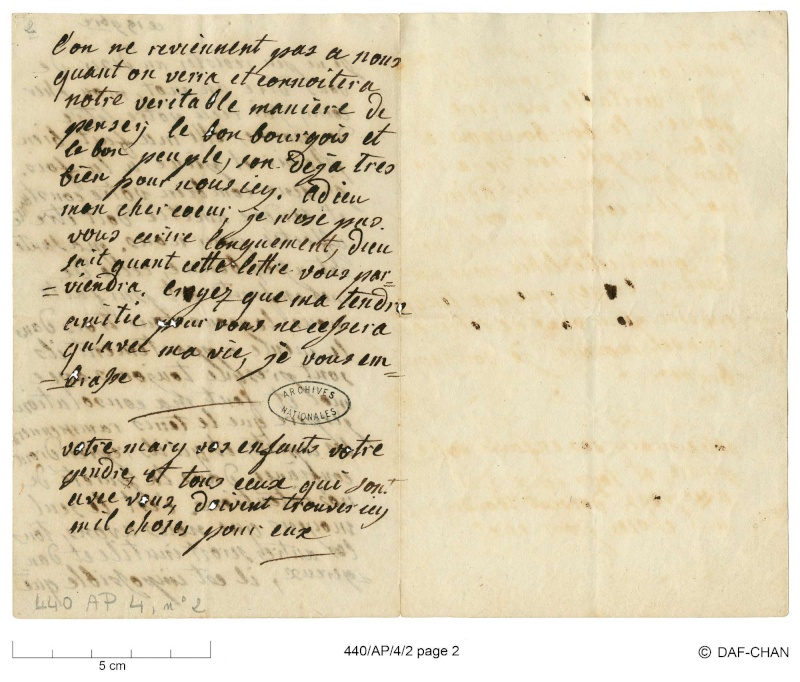 2
l'on ne reviennent pas a nous
quant on verra et connoitera
notre veritable manière de
penser, le bon bourgois et
le bon peuple, son deja tres
bien pour nous icy. adieu
mon cher coeur, je n'ose pas
vous ecrire longuement, dieu
sait quant cette lettre vous par=
=viendra. croyez que ma tendre
amitie pour vous ne cessera
qu'avec ma vie, je vous em=
=brasse
ARCHIVES
NATIONALES
votre mary vos enfants votre
gendre, et tous ceux qui sont
avec vous, doivent trouver icy
mil choses pour eux
440 AP 4, n° 2
5 cm
440/AP/4/2 page 2
© DAF-CHAN